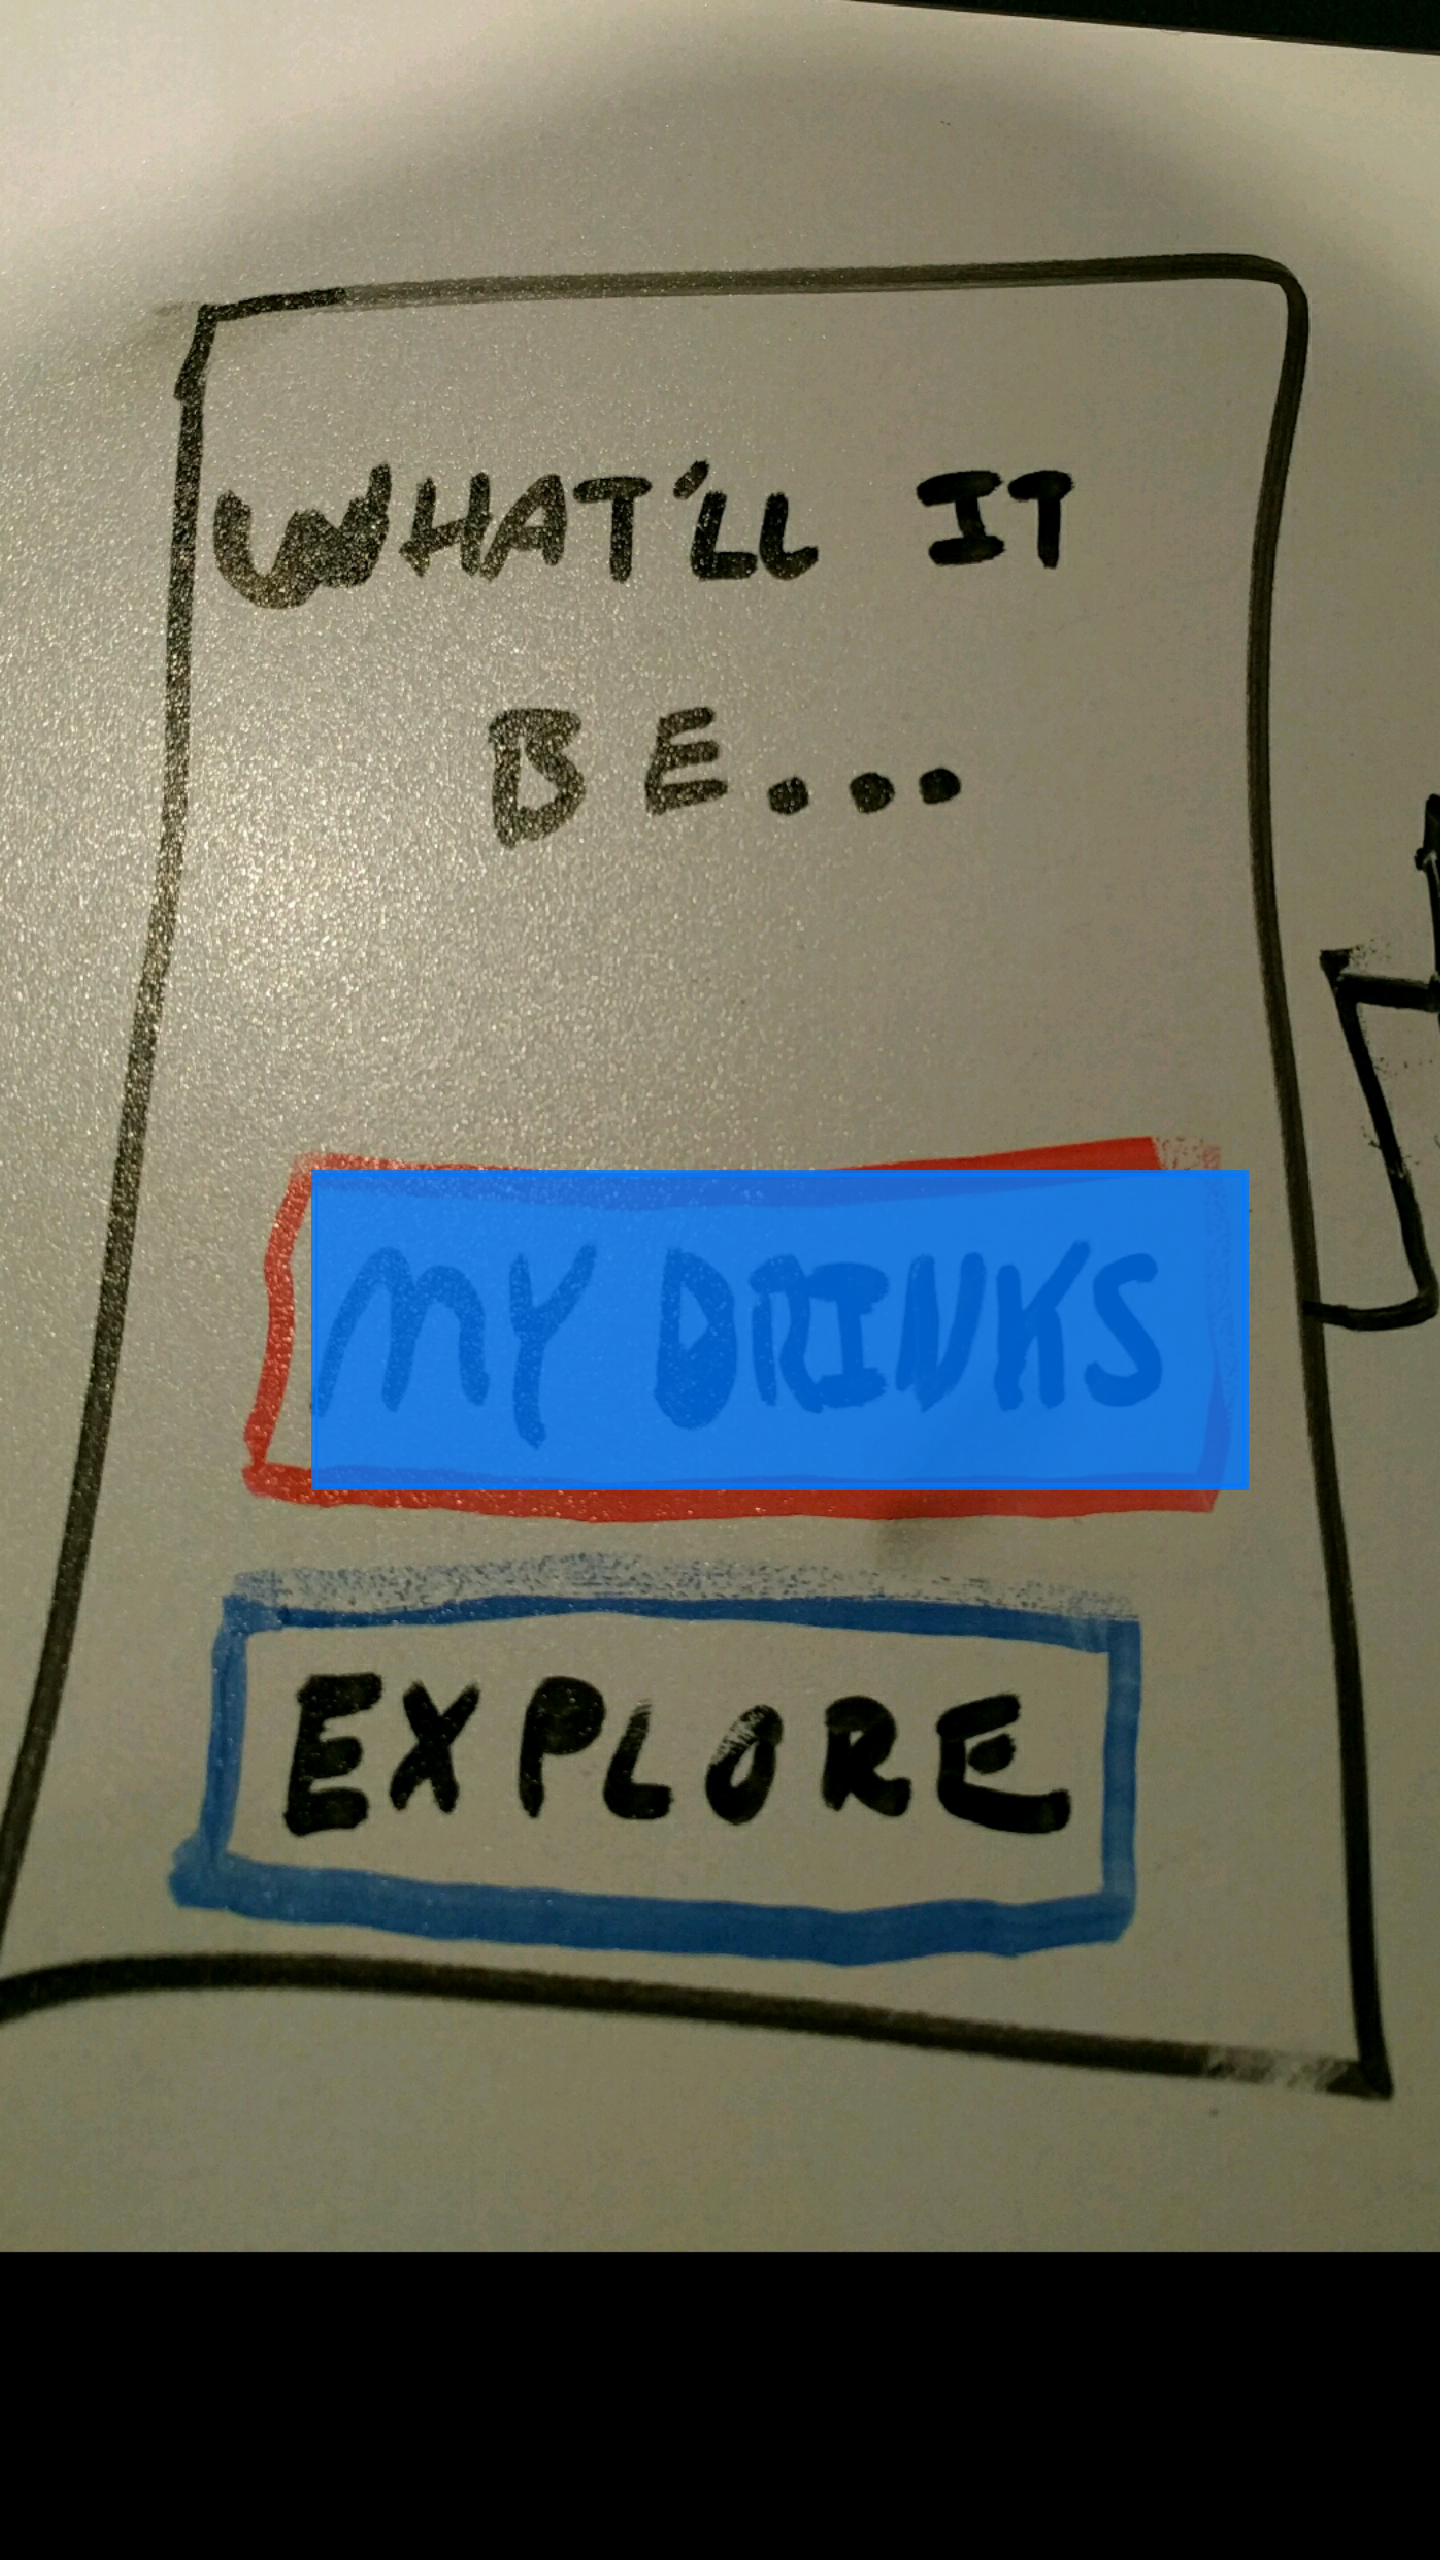 WHAT'LL IT
BE...
MY DRINKS
EXPLORE